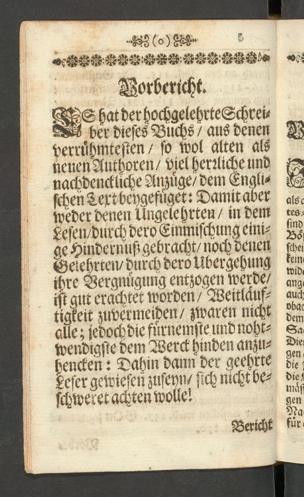 (o)
Vorbericht.
ES hat der hochgelehrte Schrei-
ber dieses Buchs / aus denen
verrühmtesten / so wol alten als
neuen Authoren / viel herzliche und
nachdenckliche Anzüge / dem Engli-
schen Text beygefüget: Damit aber
weder denen Ungelehrten / in dem
Lesen / durch dero Einmischung eini-
ge Hindernuß gebracht / noch denen
Gelehrten / durch dero Ubergehung
ihre Vergnügung entzogen werde /
ist gut erachtet worden / Weitläuf-
tigkeit zuvermeiden / zwaren nicht
alle; jedoch die fürnemste und noht-
wendigste dem Werck hinden anzu-
hencken: Dahin dann der geehrte
Leser gewiesen zuseyn / sich nicht be-
schweret achten wolle!
Bericht